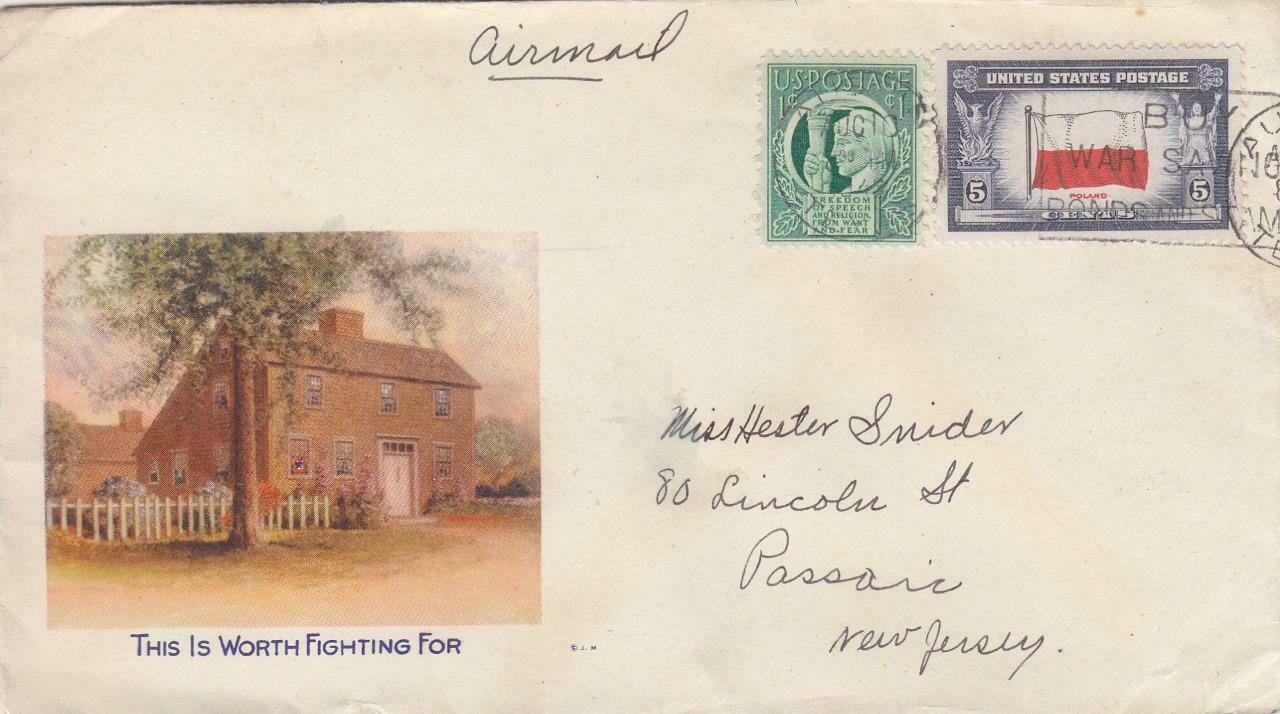 Airmail
U.S. POSTAGE
1¢ ¢1
FREEDOM
OF SPEECH
AND RELIGION,
FROM WANT
AND FEAR
UNITED STATES POSTAGE
5 5
POLAND
CENTS
BUY
WAR SA
BONDS AND S
Miss Hester Snider
80 Lincoln St
Passaic
New Jersey.
THIS IS WORTH FIGHTING FOR
© J. M